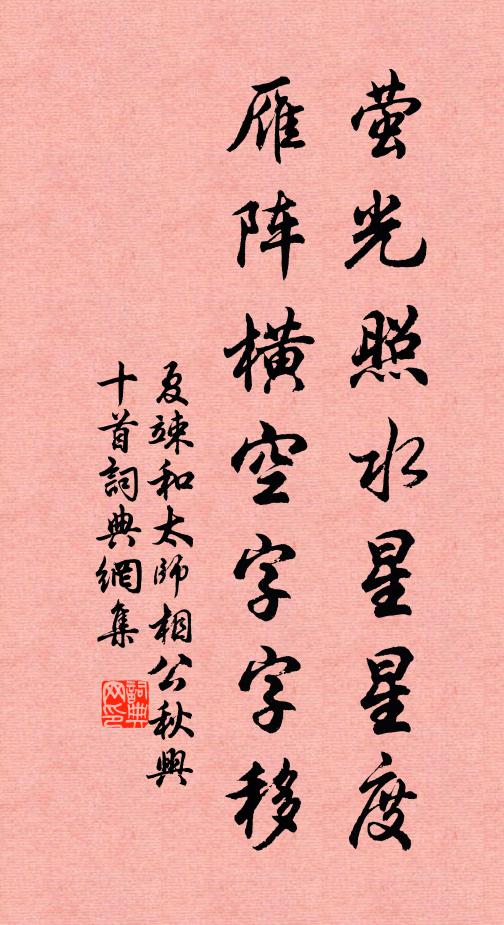 萤光照水星星度
雁阵横空字字移
夏竦和太师相公秋興
十首詞典網集
詞典网印